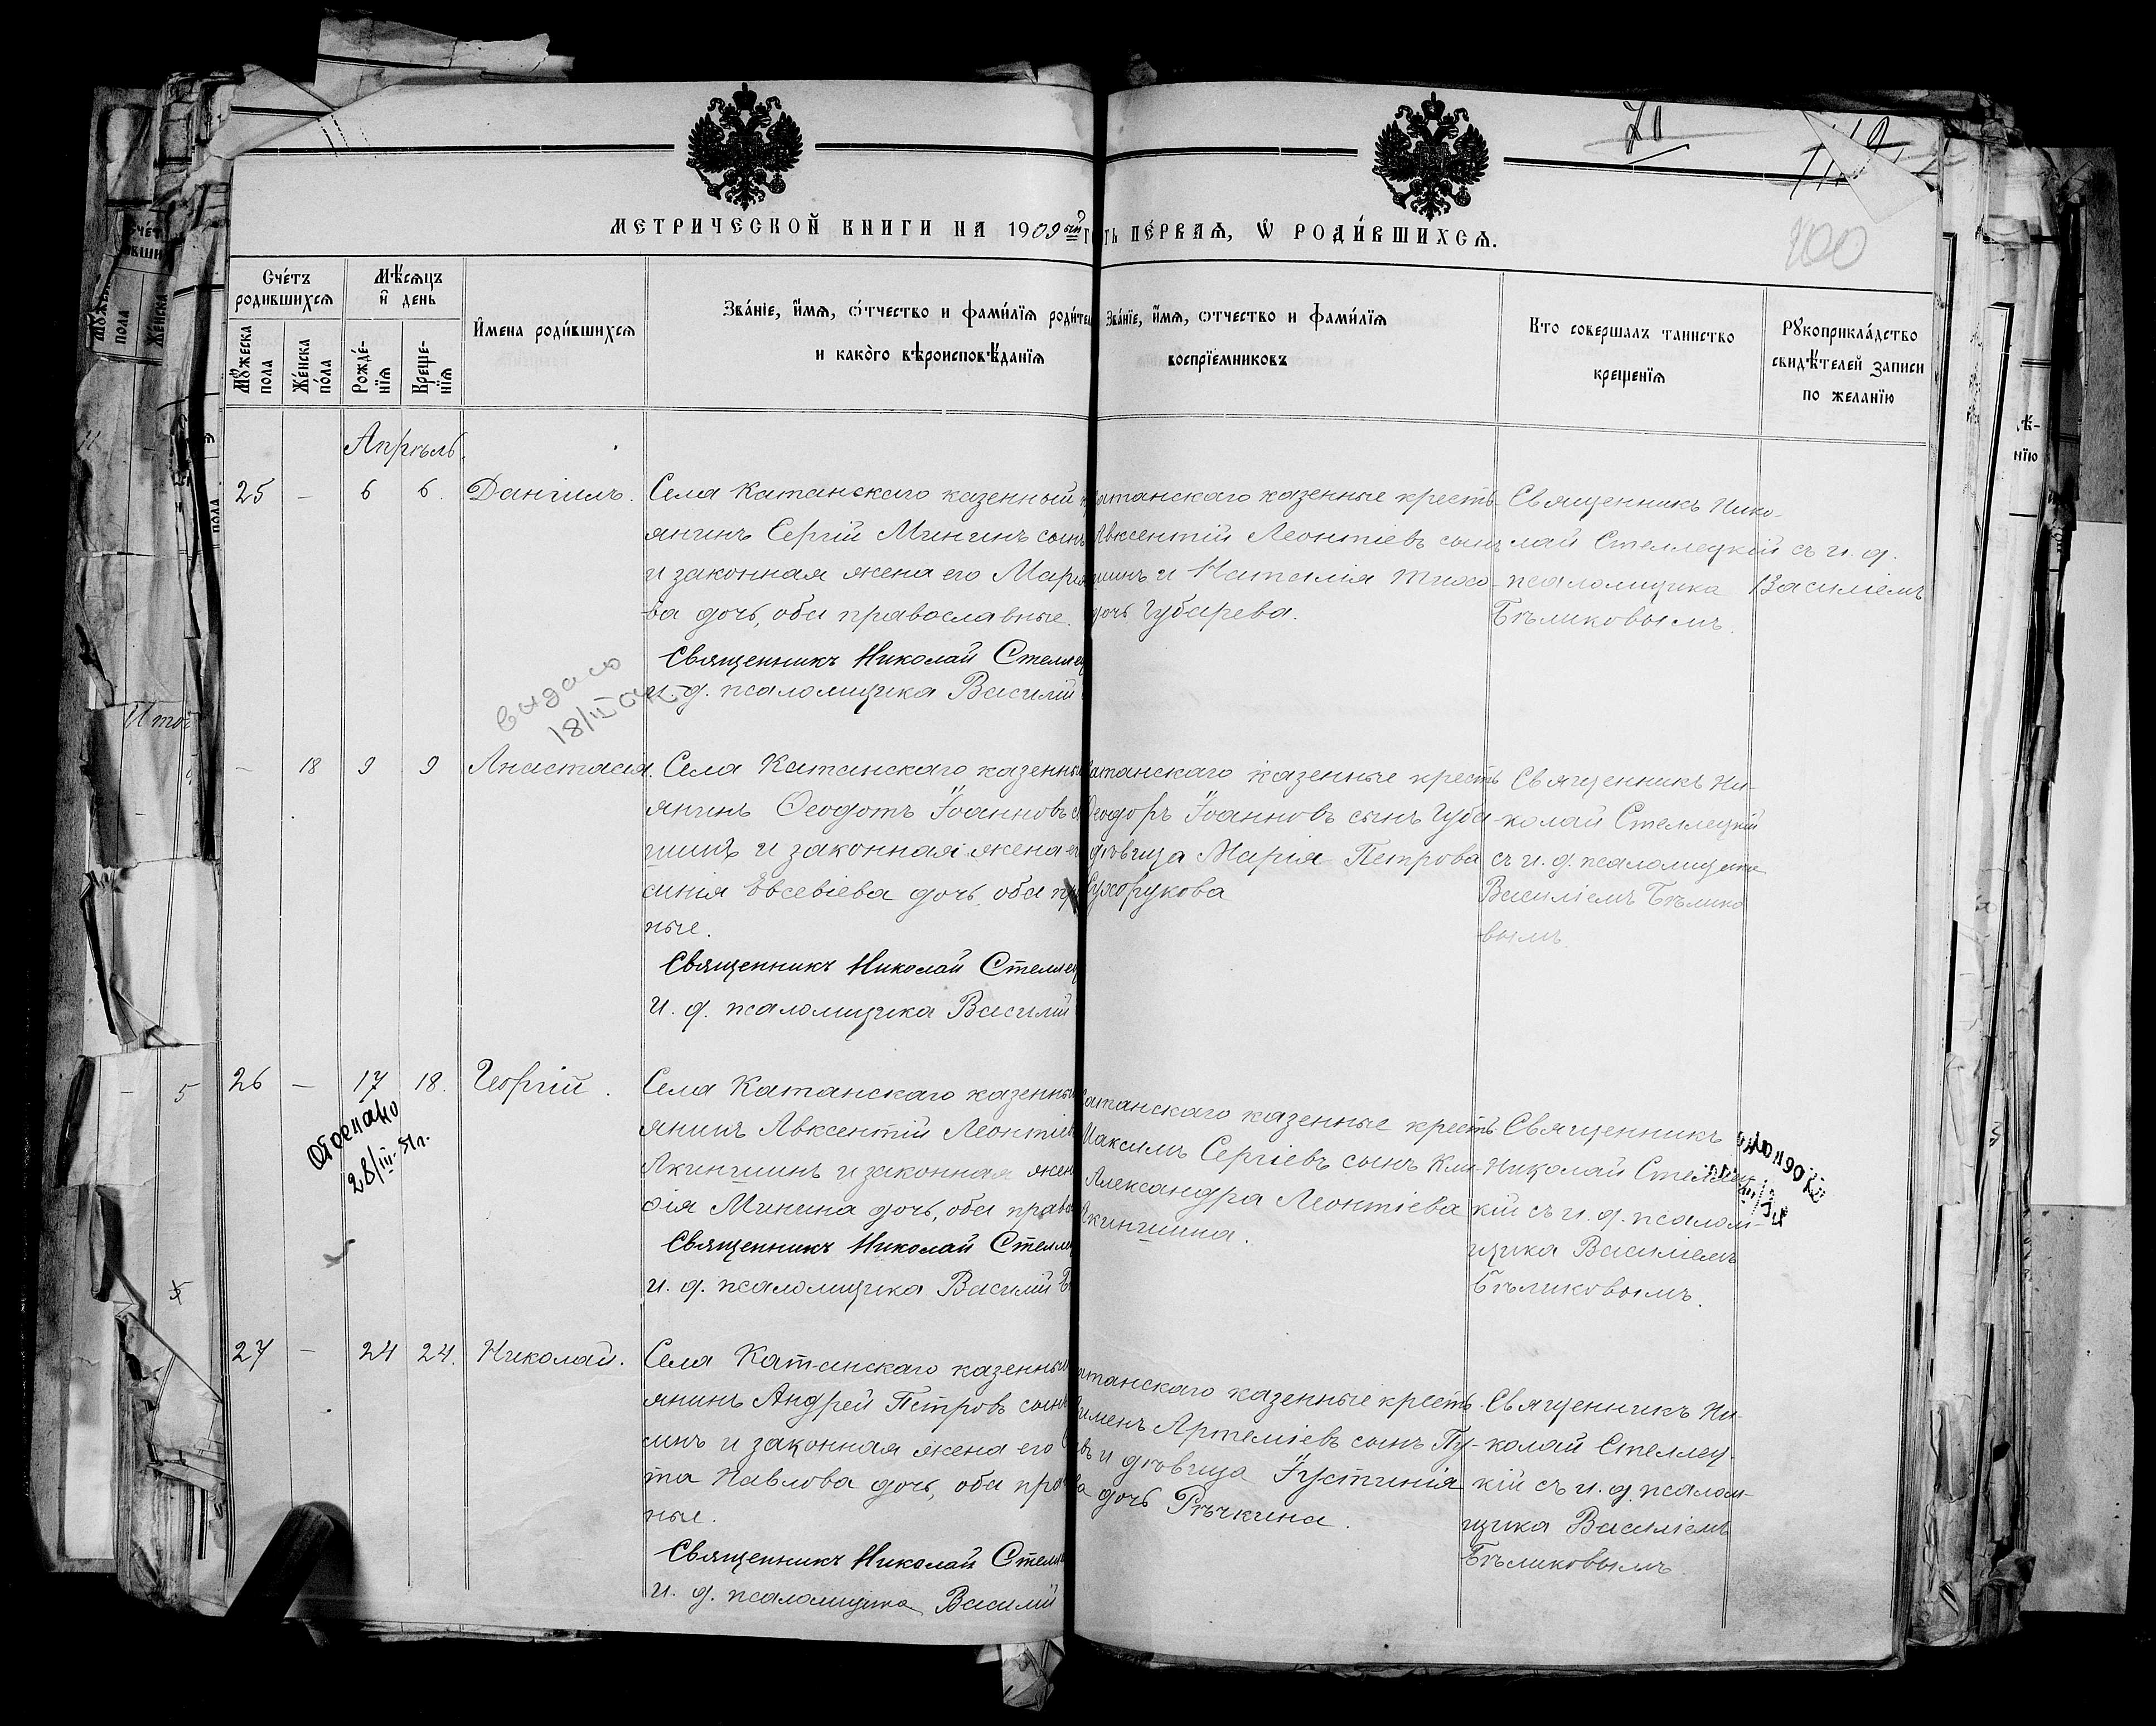 71
200
МЕТРИЧЕСКОЙ КНИГИ НА 1909ый г
ть ПЕ́РВАѦ, Ѡ҆ РОДИ́ВШИХСѦ.
Сче́тъ родившихсѧ
Мѣ́сѧцъ и҆ день
Мꙋ́жеска пола
Же́нска по́ла
Рожде́-нїѧ
Креще-нїѧ
И҆мена роди́вшихсѧ
Зва́нїе, и҆́мѧ, ѻ҆́тчество и фами́лїѧ роди́тел
и како́го вѣроисповѣ́данїѧ
Зва́нїе, и҆́мѧ, ѻ҆тчество и фами́лїѧ
воспрїе́мниковъ
Кто совершалъ таинство
крещенїѧ
Рꙋкоприкла́дство
свидѣ́телей записи
по желанїю
Апрѣль.
25 – 6 6. Данiилъ.
Села Катанскаго казенный
янинъ Сергiй Мининъ сынъ
и законная жена его Марiя
ва дочь, оба православные.
Священникъ Николай Стеллец
и. д. псаломщика Василiй
атанскаго казенные кресть-
Авксентiй Леонтiевъ сынъ
шинъ и Наталiя
дочь Губарева.
Священникъ Нико-
лай Стеллецкiй съ и. д.
псаломщика Василiемъ
Бѣликовымъ.
выдано
– 18 9 9 Анастасiя.
Села Катанскаго казенный
янинъ Ѳеодотъ Iоанновъ с
шинъ и законная жена е
синiя Евсевiева дочь, оба пр
ные.
Священникъ Николай Стеллец
И. д. псаломщика Василiй
атанскаго казенные кресть
Ѳеодоръ Iоанновъ сынъ Губа-
дѣвица Марiя Петрова
Сухорукова
Священникъ Ни-
колай Стеллецкiй
съ и. д. псаломщика
Василiемъ Бѣлико
вымъ.
26 – 17 18. Георгiй.
Отослано
28/III. 51г.
Села Катанскаго казенный
янинъ Авксентiй Леонтiев
Акиншинъ и законная жен
фiя Минина дочь, оба право
Священникъ Николай Стеллец
и. д. псаломщика Василiй Б
атанскаго казенные кресть
Максимъ Сергiевъ сынъ Кли-
Александра Леонтiева
Акиншина.
Священникъ
Николай Стеллец-
кiй съ и. д. псалом-
щика Василiемъ
Бѣликовымъ.
27 – 24 24. Николай.
Села Катанскаго казенный
янинъ Андрей Петровъ сынъ
синъ и законная жена его
та Павлова дочь, оба прав
ные.
Священникъ Николай Стелл
И. д. псаломщика Василiй
атанскаго казенные кресть-
именъ Артемiевъ сынъ Пу-
въ и дѣвица Iустинiя
а дочь Рѣчкина.
Священникъ Ни-
колай Стеллец-
кiй съ и. д. псалом-
щика Василiемъ
Бѣликовымъ.